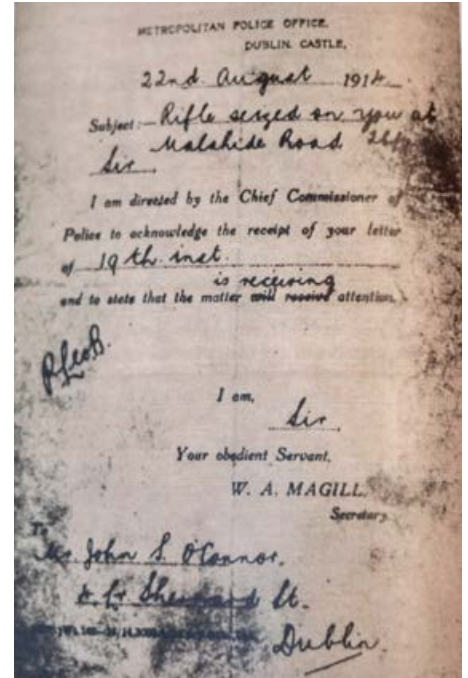 METROPOLITAN POLICE OFFICE,
DUBLIN CASTLE,
22nd August 1914.
Subject:— Rifle seized on you at
Malahide Road
Sir
I am directed by the Chief Commissioner of
Police to acknowledge the receipt of your letter
of 19th inst.
is receiving
and to state that the matter will receive attention.
I am,
Sir,
Your obedient Servant,
W. A. MAGILL,
Secretary.
To
Mr. John S. O'Connor.
St.
Dublin.